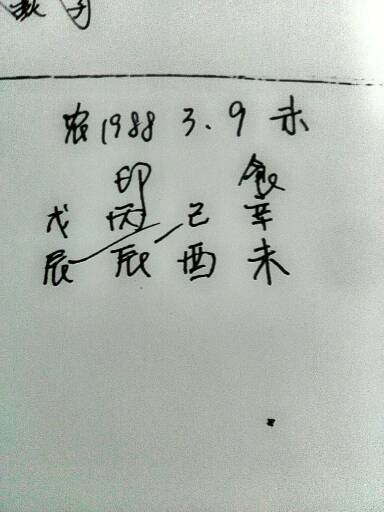 农1988 3.9 未
印 食
戊 丙 己 辛
辰 辰 酉 未